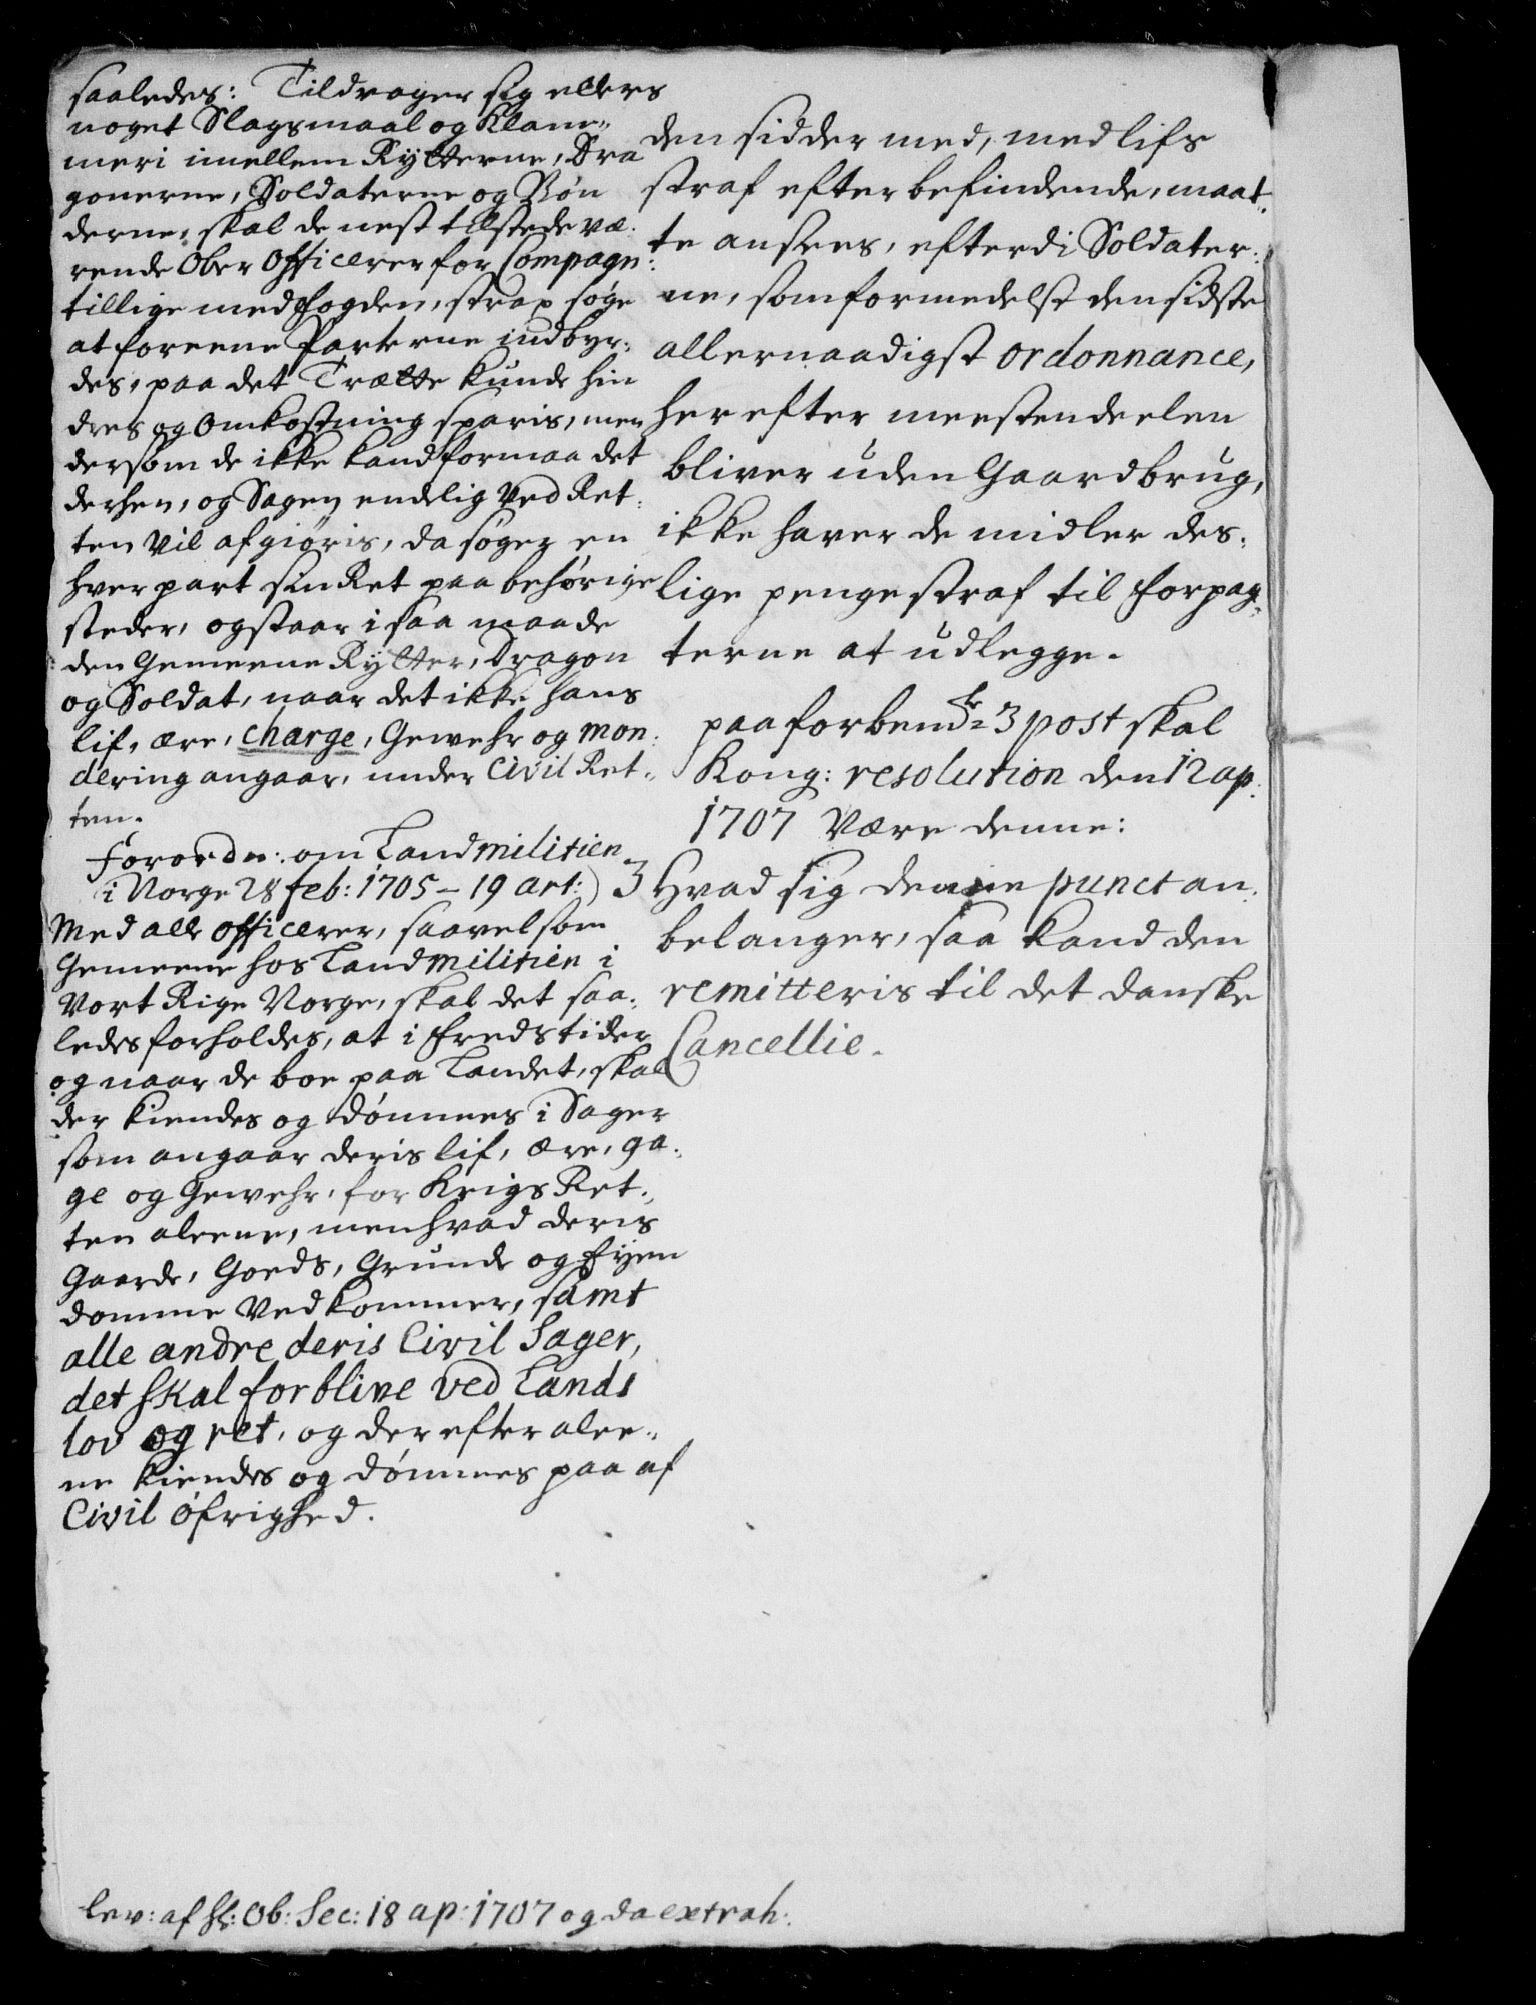 saaledes: Tildrager sig ellers
noget Slagsmaal og Klam„
meri imellem Rytterne, Dra
gonerne, Soldaterne og Bøn
derne, skal de nest tilstede væ:
rende Ober Officerer for Compagn:
tillige med fogden, strax søge
at foreene Parterne indbyr:
des, paa det Trætte kunde hin
dres og Omkostning sparis, men
dersom de ikke kand formaa det
derhen, og Sagen endelig ved Ret:
ten vil afgiøris, da søger en
hver part sin Ret paa behørige
steder, og staar i saa maade
den Gemeene Rytter, Dragon
og Soldat, naar det ikke hans
lif, ære, charge, Gewehr og mon:
dering angaar, under Civil Ret„
ten.
forordn: om Landmilitien
i Norge 28 feb: 1705 – 19 art:)
Med alle officerer, saavel som
Gemeene hos Landmilitien i
Vort Rige Norge, skal det saa:
ledes forholdes, at i freds tider
og naar de boe paa Landet, skal
der kiendes og dømmes i Sager
som angaar deris lif, ære, ga:
ge og Gewehr, for Krigs Ret„
ten aleene, men hvad deris
Gaarde, Goeds, Grunde og Eyen
domme Ved kommer, samt
alle andre deris Civil Sager,
det skal forblive ved Lands
lov og ret, og der efter alee„
ne kiendes og dømmes paa af
Civil øfrighed.
den sidder med, med lifs
straf efter befindende, maat„
te ansees, efterdi Soldater:
ne, som formedelst den sidste
allernaadigst ordonnance,
her efter meestendeelen
bliver uden Gaardbrug,
ikke haver de midler des:
lige penge straf til forpag„
terne at udlegge.
paa forbend:te 3 post skal
Kong: resolution den 12 ap:
1707 være denne:
3 Hvad sig denne punct an:
belanger, saa kand den
remitteris til det danske
Cancellie.
lev: af Hr: Ob: Sec: 18 ap: 1707 og da extrah: